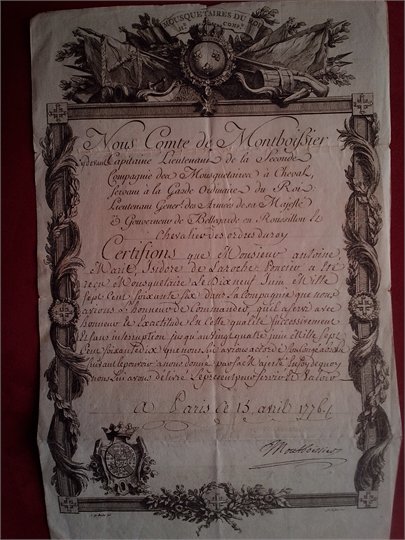 MOUSQUETAIRES DU ROI
IIe COMPie
Nous Comte de Montboissier
Capitaine Lieutenant de la Seconde
Compagnie des Mousquetaires à Cheval,
servant à la Garde Ordinaire du Roi
Lieutenant Genéral des Armées de sa Majesté
& Gouverneur de Bellegarde en Roussillon et
Chevalier des ordres du roy
Certifions que Monsieur antoine
Marie Isidore de Laroche Poncier a été
reçu Mousquetaire Le Dixneuf Juin Mille
Sept Cent soixante six dans la Compagnie que nous
avions L'honneur de Commander, qu'il a servi avec
honneur et exactitude en Cette qualité Successivement
et sans interruption jusqu'au vingt quatre juin Mille Sept
Cent soixante dix que nous lui avions accordé
suivant le pouvoir a nous donné par Sa Majesté
nous lui avons délivré Le present pour servir et Valoir
a Paris Ce 15 avril 1776
Montboissier